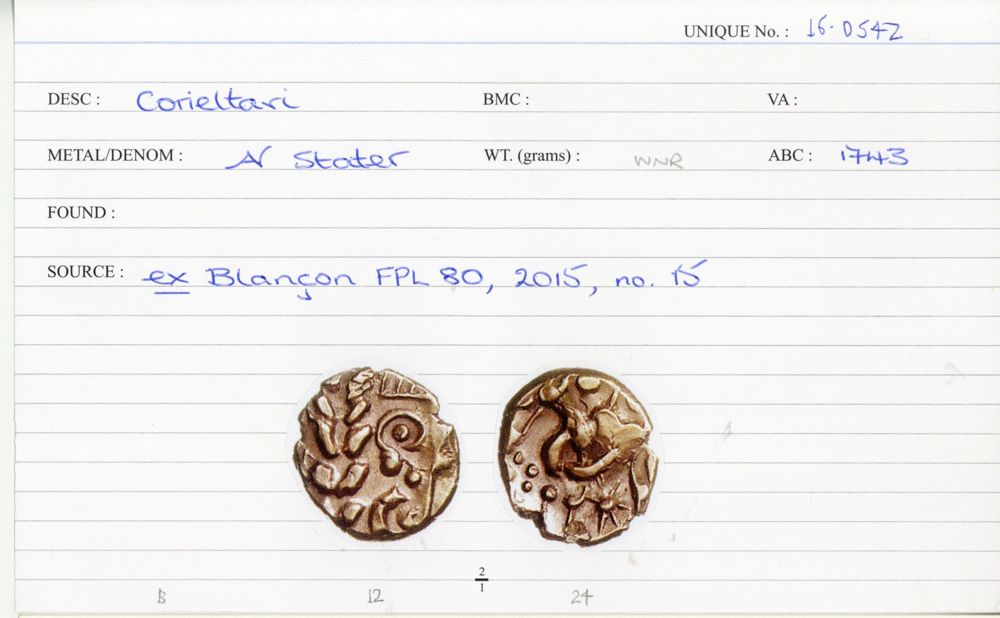 UNIQUE No. : 16-0542
DESC : Corieltavi BMC : VA :
METAL/DENOM : AV Stater WT. (grams) : WNR ABC : 1743
FOUND :
SOURCE : ex Blançon FPL 80, 2015, no. 15
2
1
B 12 24